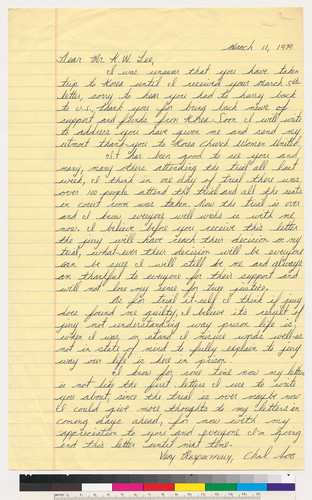 March 11, 1979
Dear Mr. K.W. Lee,
I was unaware that you have taken
trip to Korea until I received your March 5th
letter, sorry to hear you had to hurry back
to U.S., thank you for being back news of
support and funds from Korea. Soon I will write
to address you have given me and send my
utmost thank-you to Korea Church Women United.
It has been good to see you and
many, many others attending the trial all last
week, I think in one day of trial there was
over 100 people attend the trial and all the seats
in court room was taken. Now the trial is over
and I know everyone well wishes is with me
now. I believe before you receive this letter
the jury will have reach their decision on my
trial, what-ever their decision will be everyone
can be sure I will still be me and always
am thankful to everyone for their support and
will not lose my sense for true justice.
As for trial it-self I think if jury
does found me guilty, I believe its result of
jury not understanding way prison life is,
when I was on stand I misuse words well as
not in state of mind to fully explain to jury
way our life is here in prison.
I know for some time now my letter
is not like the first letters I use to write
you about, since the trial is over maybe now
I could give more thoughts to my letters in
coming days ahead, for now with my
appreciation to you and everyone I'm going
end this letter until next time.
Very Respectfully, Chol Soo